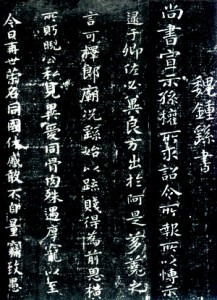 魏鍾繇書
尚書宣示孫權所求詔令所報所以博示
逮于卿佐必冀良方出於阿是芻蕘之
言可擇郎廟況繇始以疏賤得為前恩橫
所眄睨公私見異愛同骨肉殊遇厚寵以至
今日再世榮名同國休慼敢不自量竊致愚